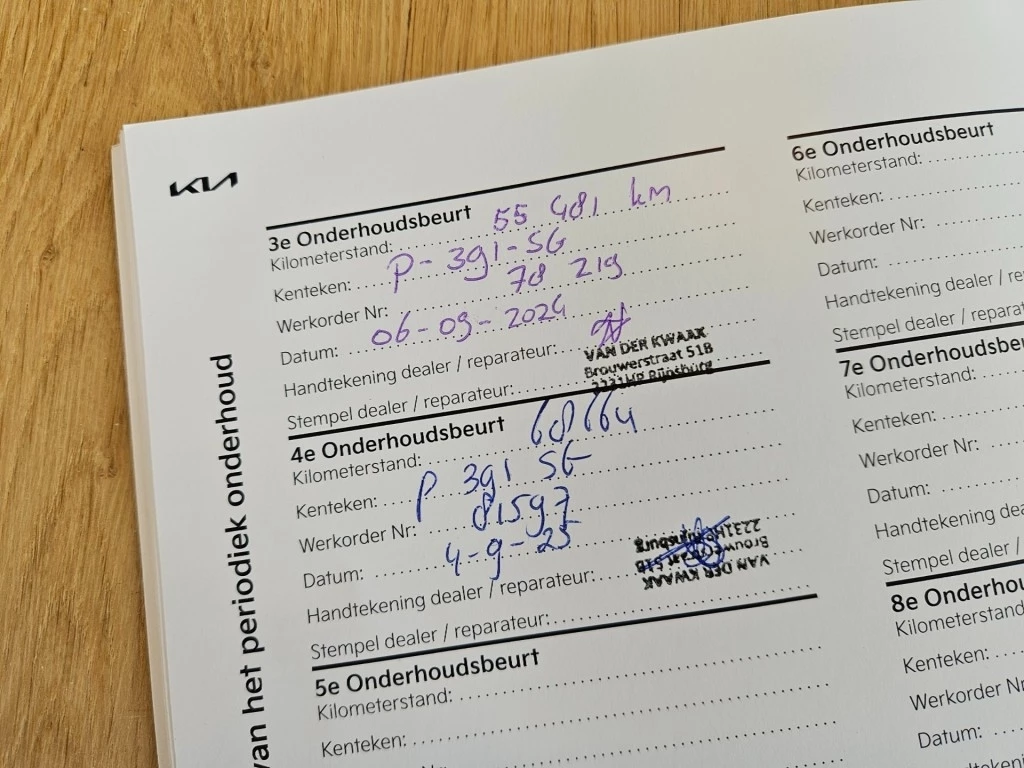 KIA
van het periodiek onderhoud
3e Onderhoudsbeurt
Kilometerstand: 55 481 km
Kenteken: P-391-SG
Werkorder Nr: 78 219
Datum: 06-09-2024
Handtekening dealer / reparateur:
Stempel dealer / reparateur:
VAN DER KWAAK
Brouwerstraat 51B
2231HP Rijnsburg
4e Onderhoudsbeurt
Kilometerstand: 68164
Kenteken: P 391 SG
Werkorder Nr: 81597
Datum: 4-9-25
Handtekening dealer / reparateur:
Stempel dealer / reparateur:
VAN DER KWAAK
5e Onderhoudsbeurt
Kilometerstand:
Kenteken:
6e Onderhoudsbeurt
Kilometerstand:
Kenteken:
Werkorder Nr:
Datum:
Handtekening dealer / re
Stempel dealer / reparat
7e Onderhoudsbeu
Kilometerstand:
Kenteken:
Werkorder Nr:
Datum:
Handtekening dea
Stempel dealer /
8e Onderhou
Kilometerstand
Kenteken:
Werkorder Nr
Datum: